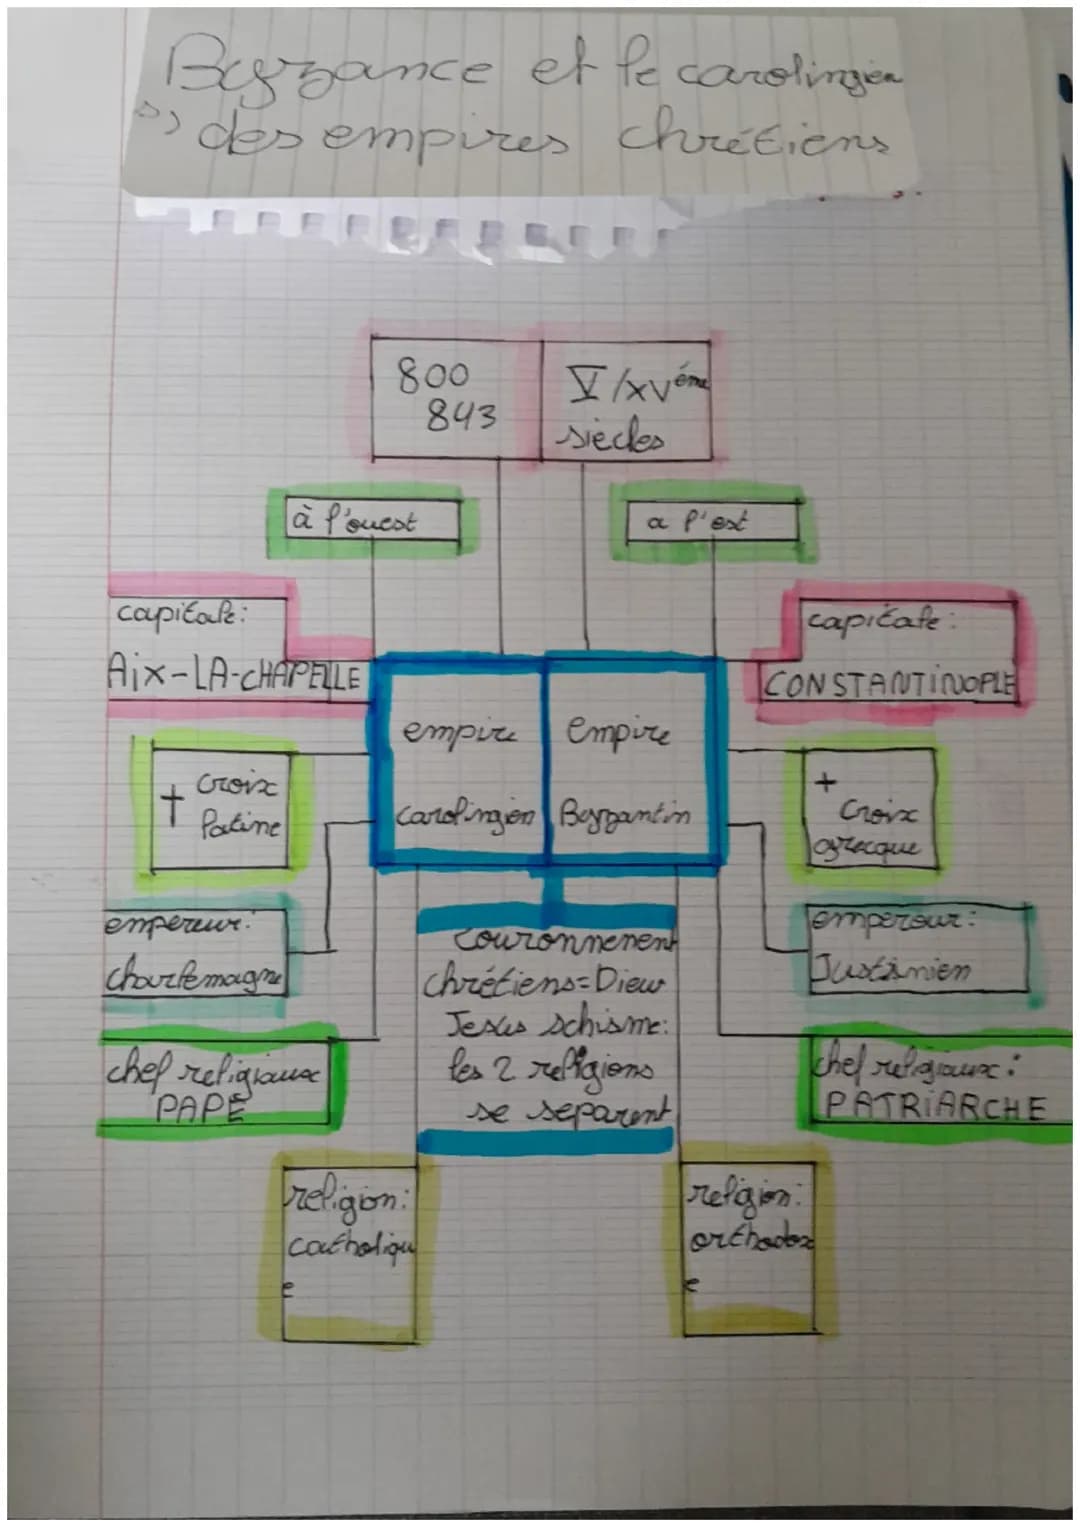 Byzance et le carolingien
des empires chrétiens
800
843
V/XVème
siècles
à l'ouest
a l'est
capitale:
AiX-LA-CHAPELLE
capitale:
CONSTANTINOPLE
empire
carolingien
empire
Byzantin
croix
latine
+
Croix
grecque
empereur:
charlemagne
empereur:
Justinien
couronnement
chrétiens=Dieu
Jesus schisme:
les 2 religions
se separent
chef religiaux
PAPE
chef religiaux:
PATRiARCHE
religion:
catholiqu
e
religion:
orthodox
e